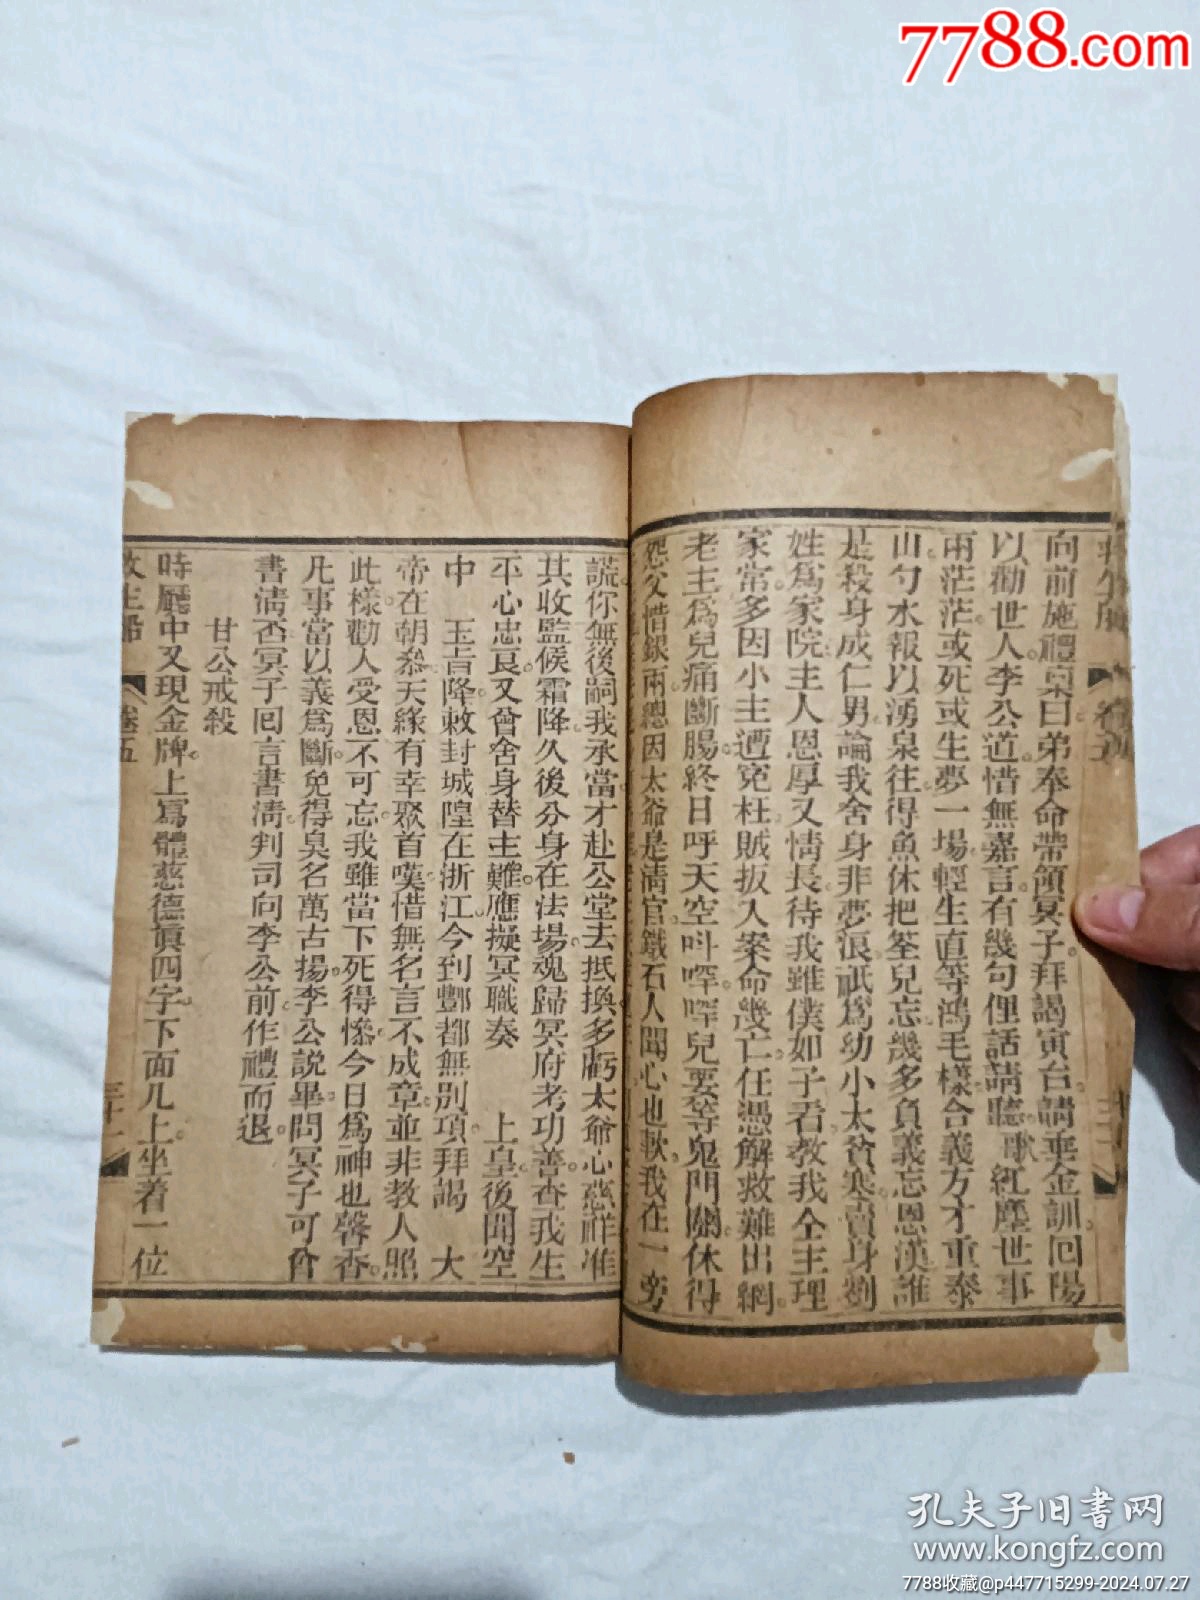 7788.com
向前施禮稟曰弟奉命帶領冥子拜謁寅台請垂金訓囘陽
以勸世人李公道惜無嘉言有幾句俚話請聽歌紅塵世事
兩茫茫或死或生夢一場輕生直等鴻毛樣合義方才重泰
山勺水報以湧泉往得魚休把筌兒忘幾多負義忘恩漢誰
是殺身成仁男論我舍身非夢浪祇爲幼小太貧寒賣身劉
姓爲家院主人恩厚又情長待我雖僕如子看教我仝主理
家常多因小主遭冤枉賊扳入案命幾亡任憑解救難出網
老主爲兒痛斷腸終日呼天空叫啈啈兒要等鬼門關休得
怨父惜銀兩總因太爺是清官鐵石人聞心也軟我在一旁
謊你無後嗣我承當才赴公堂去抵換多虧太爺心慈祥准
其收監候霜降久後分身在法場魂歸冥府考功善查我生
平心忠良又曾舍身替主難應擬冥職奏 上皇後聞空
中 玉旨降敕封城隍在浙江今到酆都無別項拜謁 大
帝在朝叅天緣有幸聚首嘆惜無名言不成章並非教人照
此樣勸人受恩不可忘我雖當下死得慘今日爲神也馨香
凡事當以義爲斷免得臭名萬古揚李公説畢問冥子可曾
書清否冥子囘言書清判司向李公前作禮而退
甘公戒殺
時廳中又現金牌上寫體慈德慎四字下面几上坐着一位
卷五
孔夫子旧书网
www.kongfz.com
7788收藏@p447715299-2024.07.27